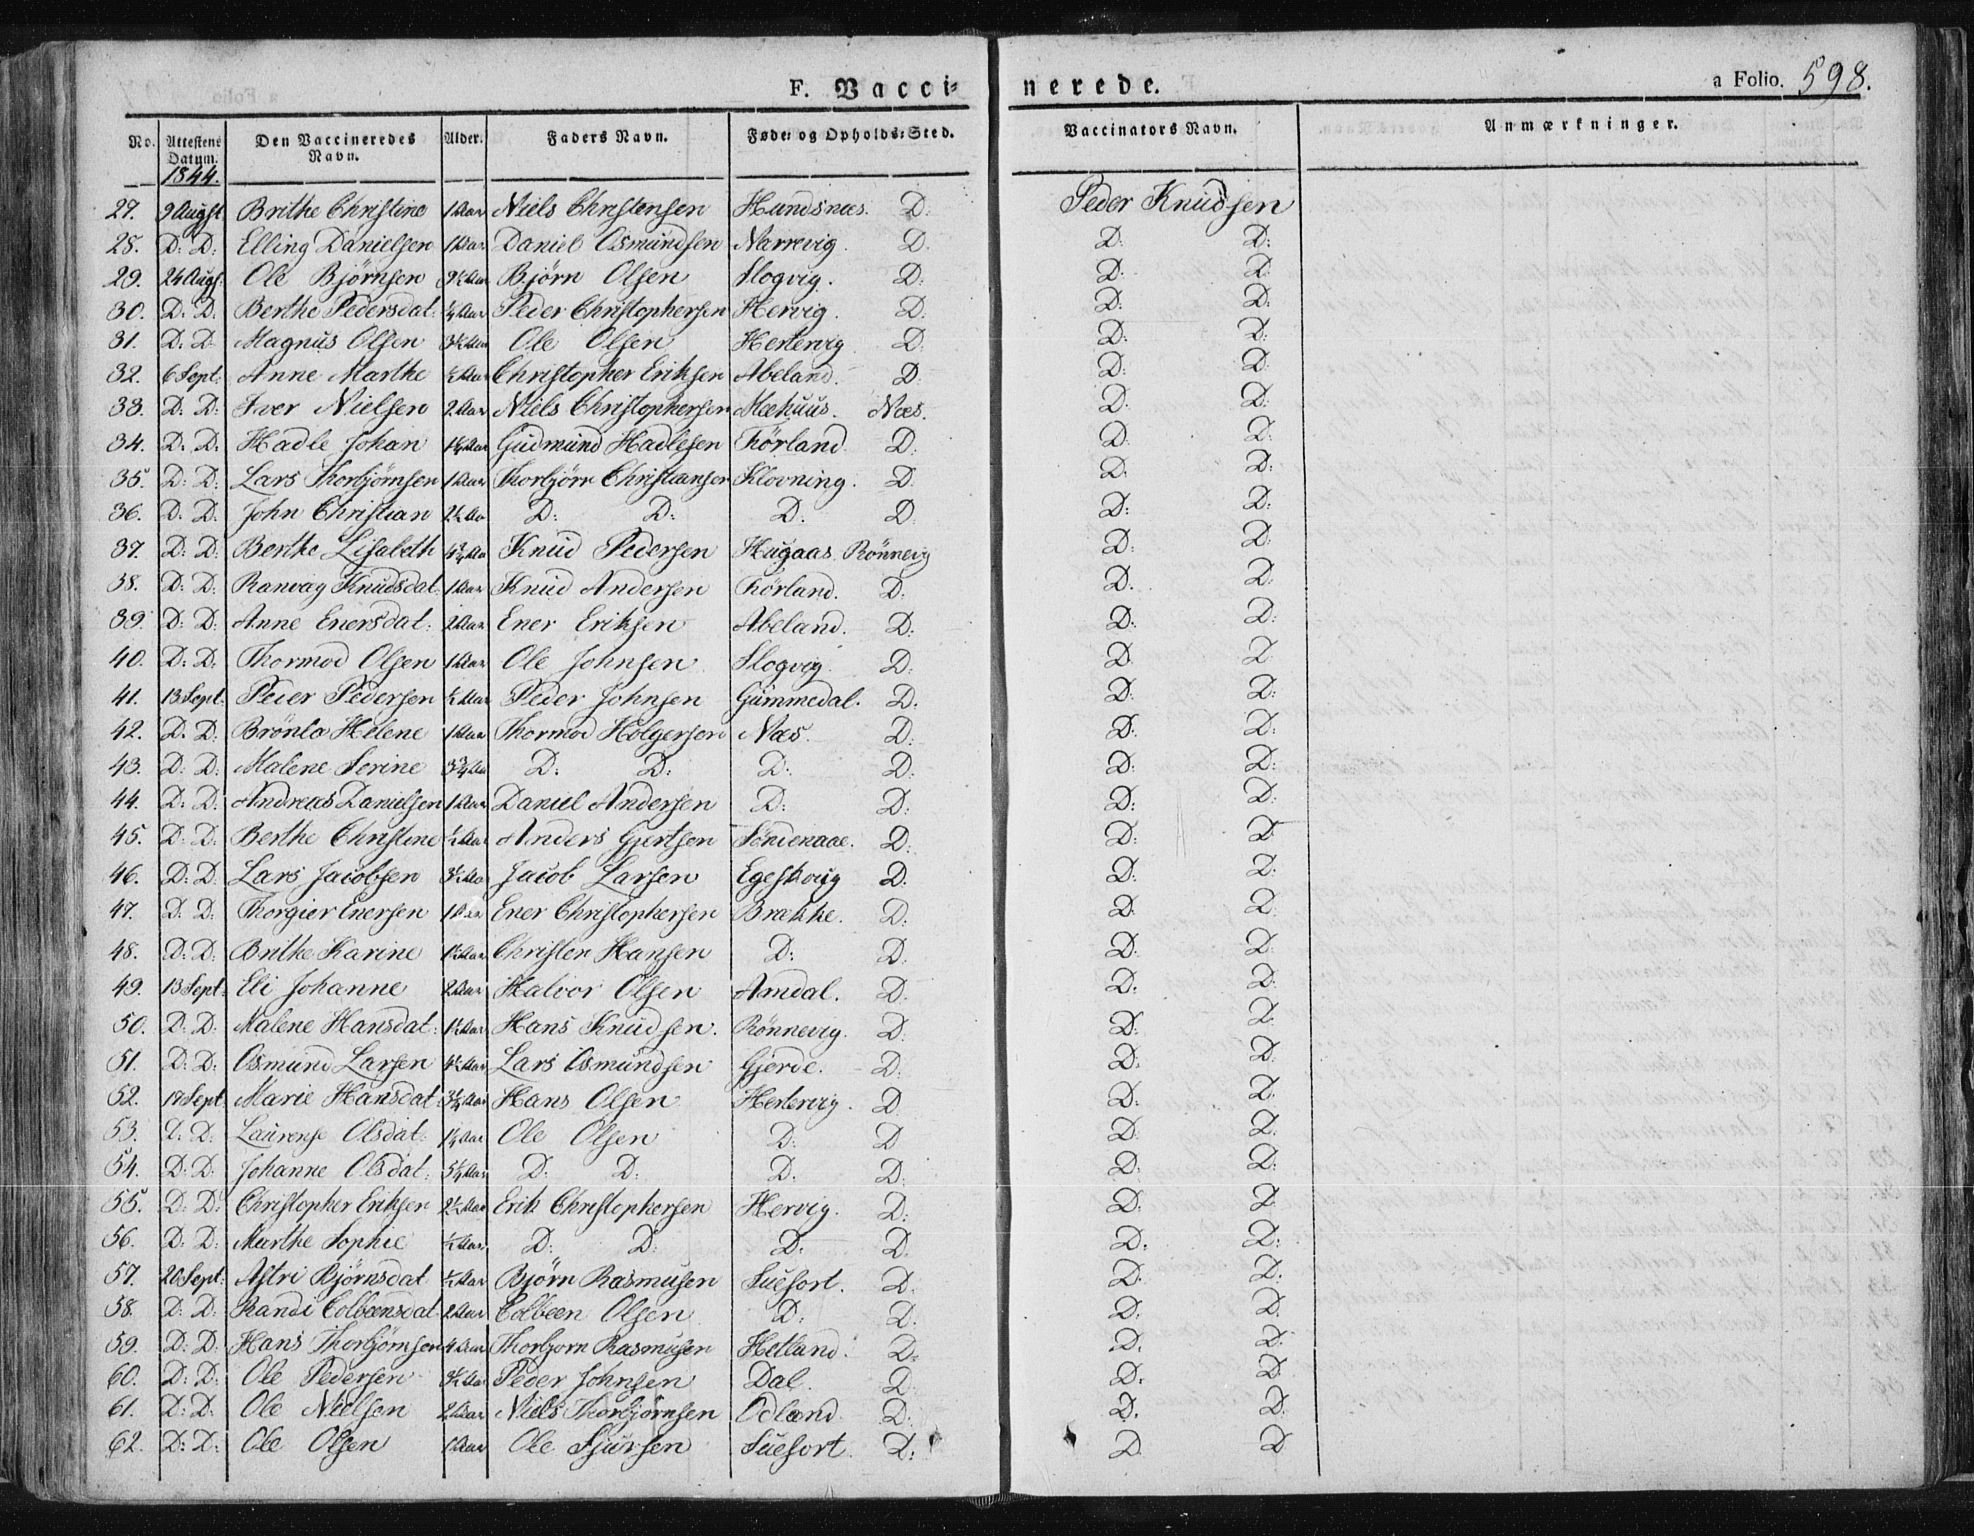 F. Vacci- nerede. a Folio. 598.
No. Attestens Datum. Den Vaccineredes Navn. Alder. Faders Navn. Føde- og Opholds-Sted. Vaccinators Navn. Anmærkninger.
1844.
27. 9 Augst Brithe Christine 1 Aar Niels Christensen Hundsnæs. D: Peder Knudsen
28. D: D: Elling Danielsen 1 Aar Daniel Osmundsen Narrevig. D. D: D:
29. 24 Augs. Ole Bjørnsen Bjørn Olsen Slogvig. D: D: D:
30. D: D: Berthe Pedersdat. ¼ Aar Peder Christophersen Hervig. D. D: D:
31. D: D. Magnus Olsen 3½ Aar Ole Olsen Hertervig D. D: D:
32. 6 Sept: Anne Marthe ½ Aar Christopher Eriksen Abeland. D: D: D:
33. D: D: Iver Nielsen 2 Aar Niels Christophersen Mæhuus. Næs. D: D:
34. D: D: Hadle Johan Gudmund Hadlesen Førland. D: D: D:
35. D: D: Lars Thorbjørnsen 1 Aar Thorbjørn Christiansen Klovning. D. D: D:
36. D: D: John Christian 2½ Aa D: D: D: D D: D:
37. D: D: Berthe Lisabeth 4¾ Aa Knud Pedersen Hugaas. Rønnevig D: D:
38. D: D: Ranvag Knudsdat. 1 Aar Knud Andersen Førland. D: D. D:
39. D: D: Anne Enersdat: 2 Aar Ener Eriksen Abeland. D: D: D:
40. D: D: Thormod Olsen 1 Aar Ole Johnsen Slogvig. D: D. D.
41. 13 Sept. Peder Pedersen ½ Aar Peder Johnsen Gummedal. D: D: D:
42. D. D: Brønla Helene 1 Aar Thormod Holgersen Næs. D: D: D:
43. D: D: Malene Serine 3¾ Aa D: D: D: D: D: D:
44. D: D: Andreas Danielsen 1 Aar Daniel Andersen D: D: D: D:
45. D: D: Berthe Christine ½ Aar Anders Gjertsen Søndenaae. D: D: D.
46. D: D: Lars Jacobsen 3½ Aa Jacob Larsen Egeskoug D: D: D:
47. D: D: Thorgier Enersen 1 Aar Ener Christophersen Brække. D: D: D:
48. D: D: Brithe Karine 1½ Aar Christen Hansen D: D. D: D:
49. 13 Sept. Eli Johanne 2 Aar Halvor Olsen Amdal. D: D: D:
50. D: D: Malene Hansdat: 1½ Aar Hans Knudsen. Rønnevig. D: D: D.
51. D: D: Osmund Larsen 4½ Aar Lars Osmundsen Gjerde. D: D: D:
52. 19 Sept. Marie Hansdat 3¼ Aar Hans Olsen Hertervig. D D: D:
53. D: D: Laurense Olsdat: 1¼ Aar Ole Olsen D: D D: D:
54. D: D: Johanne Olsdat: 5¼ Aar D: D: D: D: D: D:
55. D: D: Christopher Eriksen 2½ Aar Erik Christophersen Hervig. D: D: D.
56. D: D: Marthe Sophie ½ Aar D: D: D: D. D: D:
57. 20 Sept: Astri Bjørnsdat ½ Aar Bjørn Rasmusen Suefort. D: D: D:
58. D: D: Randi Colbeensdat 2 Aar Colbeen Olsen D: D: D: D.
59. D: D: Hans Thorbjørnsen 4 Aar Thorbjørn Rasmusen Hetland. D: D: D:
60. D: D: Ole Pedersen 3½ Aar Peder Johnsen Dal. D: D: D.
61. D: D: Ole Nielsen 2 Aar Niels Thorbjørnsen Odland. D: D: D:
62. D: D: Ole Olsen 1 Aar Ole Sjursen Suefort. D: D. D